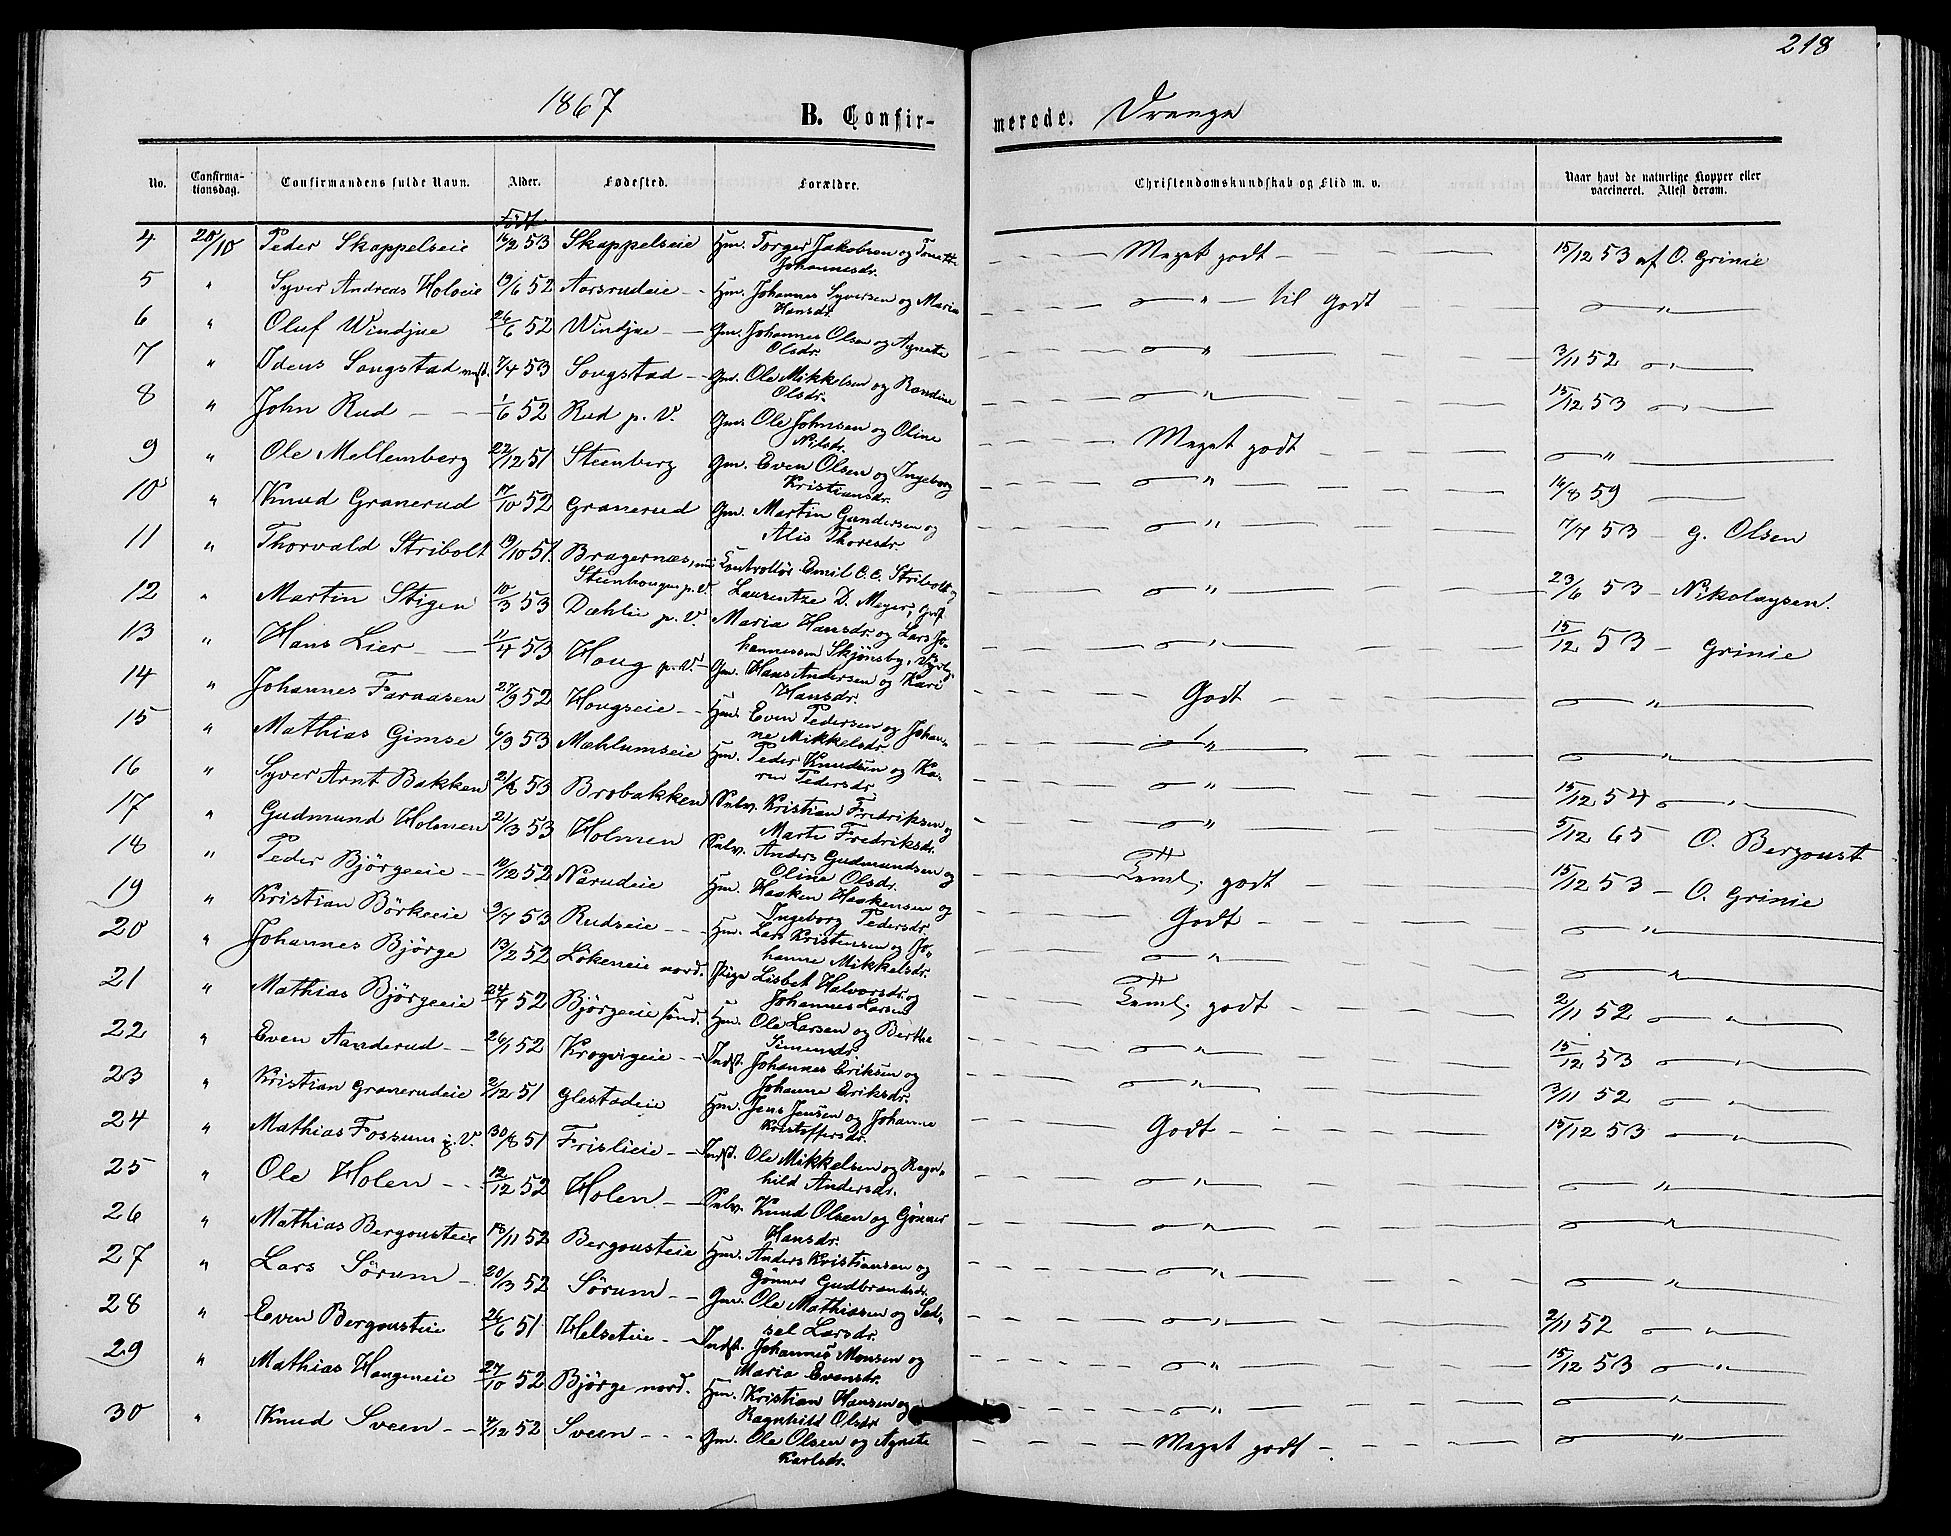 218
1867 B. Confir- merede. Drenge
No. Confirma-tionsdag. Confirmandens fulde Navn. Alder. Fødested. Forældre. Christendomskundskab og Flid m. v. Naar havt de naturlige Kopper eller vaccineret. Attest derom.
Født
4 20/10 Peder Skappelseie 16/2 53 Skappelseie Hm. Torger Jakobsen og Tonette Johannesdr. Meget godt 15/12 53 af O. Grinie
5 " Syver Andreas Holveie 19/6 52 Aasrudeie Hm. Johannes Syversen og Maria Hansdr. " til Godt "
6 " Oluf Windjue 26/6 52 Windjue Gm. Johannes Olsen og Agnete Olsdr. " 3/11 52 "
7 " Odens Sougstad 7/4 53 Sougstad Gm. Ole Mikkelsen og Randine Olsdr. " 15/12 53 "
8 " John Rud 1/6 52 Rud p. V. Gm. Ole Johnsen og Oline Nilsdr. Meget godt "
9 " Ole Mellemberg 22/12 51 Steenberg Gm. Even Olsen og Ingeborg Kristiansdr. " 16/8 59
10 " Knud Granerud 17/10 52 Granerud Gm. Martin Gundersen og Alis Thoresdr. " 7/7 53 G. Olsen
11 " Thorvald Stribolt 19/10 51 Bragernæs, Steenhougen p. V. Kontrollør Emil C. E. Stribolt og Laurentze D. Meyer, " 23/6 53 Nikolaysen.
12 " Martin Stigen 10/3 53 Dæhlie p. V. Maria Hansdr. og Lars Johannessen Skjønsby, " 15/12 53 Grinie
13 " Hans Lier 11/4 53 Houg p. V. Gm. Hans Andersen og Kari Hansdr. Godt "
14 " Johannes Faraasen 27/9 52 Hougseie Hm. Even Pedersen og Johanne Mikkelsdr. " "
15 " Mathias Gimse 6/9 53 Mæhlumseie Hm. Peder Knudsen og Karen Pedersdr. " 15/12 54 "
16 " Syver Arnt Bakken 21/8 53 Brobakken Selv. Kristian Fredriksen og Marte Fredriksdr. " 5/12 65 O. Bergoust
17 " Gudmund Holmen 21/3 53 Holmen Selv. Anders Gudmundsen og Oline Olsdr. Teml. godt 15/12 53 O. Grinie
18 " Peder Björgeeie 10/12 52 Narudeie Hm. Haaken Haakensen og Ingeborg Pedersdr. Godt "
19 " Kristian Börkeeie 9/7 53 Rudseie Hm. Lars Kristensen og Johanne Mikkelsdr. " "
20 " Johannes Bjørge 13/2 52 Lökeneie nord. Pige Lisbet Halvorsdr. og Johannes Larsen Teml. godt 2/11 52 "
21 " Mathias Björgeeie 24/7 52 Björgeeie sønd. Hm. Ole Larsen og Berthe Simensdr. " 15/12 53 "
22 " Even Aanderud 26/1 52 Krogvigeie Indst. Johannes Eriksen og Johanne Eriksdr. " 3/11 52 "
23 " Kristian Granerudeie 2/12 51 Glestadeie Hm. Jens Jensen og Johanne Kristoffersdr. Godt 15/12 53 "
24 " Mathias Fossum p. V. 30/8 51 Frislieie Indst. Ole Mikkelsen og Ragnhild Andersdr. " "
25 " Ole Holen 12/12 52 Holen Selv. Knud Olsen og Gönner Hansdr. " "
26 " Mathias Bergousteie 18/11 52 Bergousteie Hm. Anders Kristiansen og Gönner Gudbrandsdr. " "
27 " Lars Sörum 20/3 52 Sörum Gm. Ole Mathiasen og Sidsel Larsdr. " 2/11 52 "
28 " Even Bergousteie 26/6 51 Helseteie Indst. Johannes Monsen og Maria Evensdr. " 15/12 53 "
29 " Mathias Haugeneie 27/10 52 Björge nord. Hm. Kristian Hansen og Ragnhild Olsdr. " "
30 " Knud Sveen 4/12 52 Sveen Gm. Ole Olsen og Agnete Karlsdr. Meget godt "